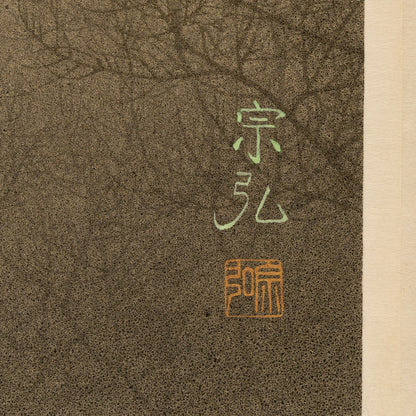 宗
弘
弘宗